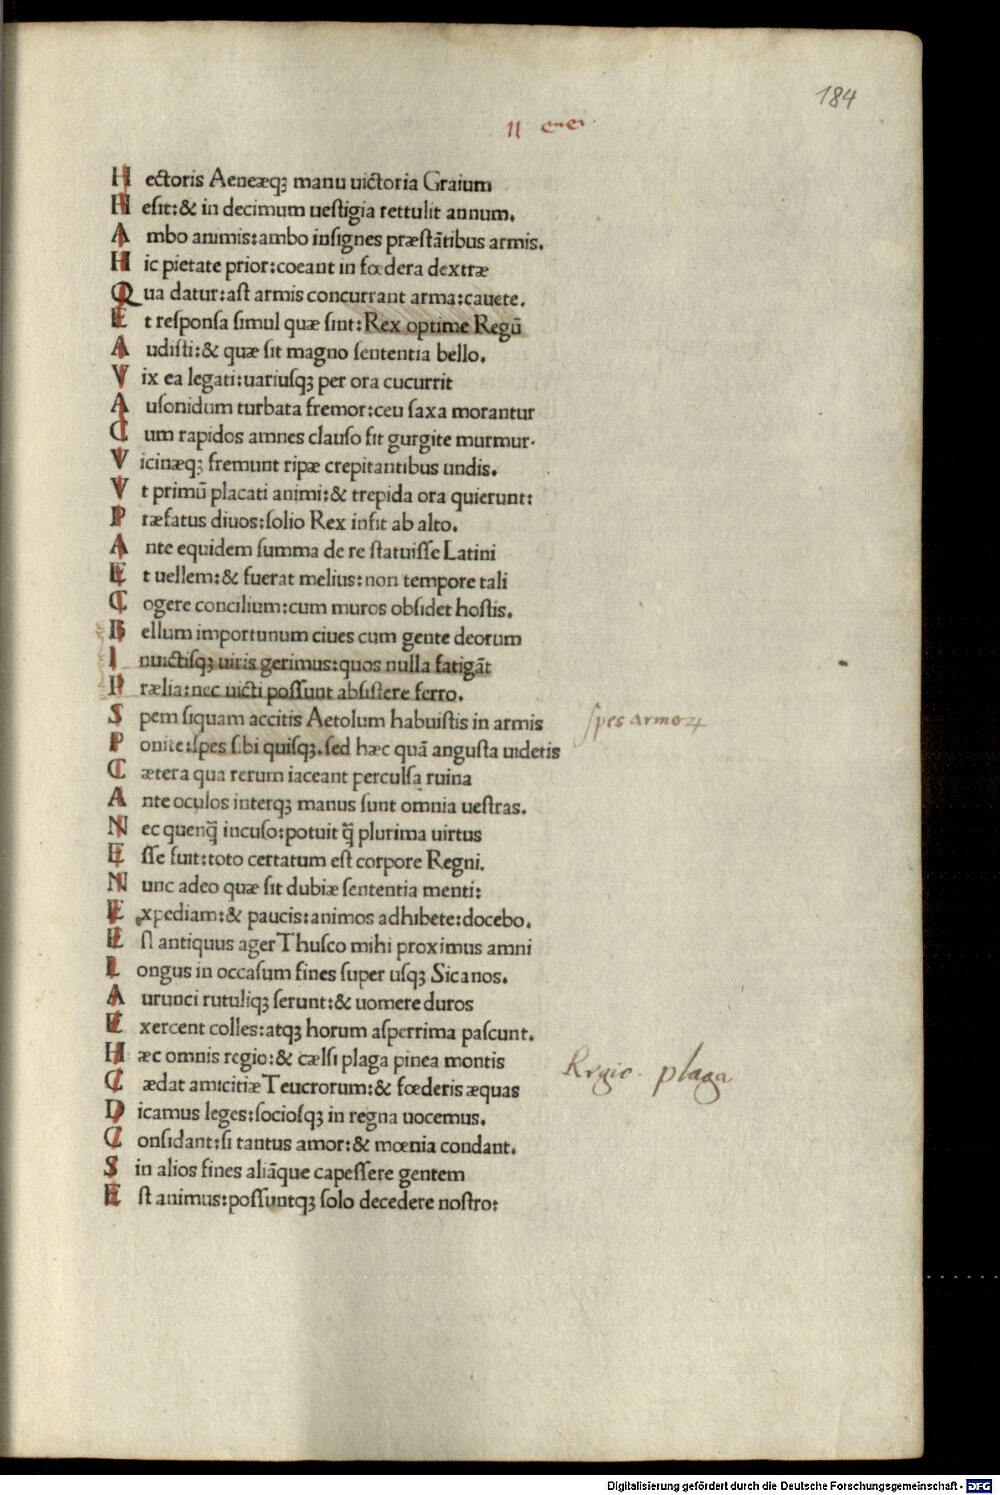 184
11 enei.
H ectoris Aeneæqꝫ manu uictoria Graium
H esit:& in decimum uestigia rettulit annum.
A mbo animis:ambo insignes præstātibus armis.
H ic pietate prior:coeant in fœdera dextræ
Q ua datur:ast armis concurrant arma:cauete.
E t responsa simul quæ sint:Rex optime Regū
A udisti:& quæ sit magno sententia bello.
V ix ea legati:uariusqꝫ per ora cucurrit
A usonidum turbata fremor:ceu saxa morantur
C um rapidos amnes clauso fit gurgite murmur.
V icinæqꝫ fremunt ripæ crepitantibus undis.
V t primū placati animi:& trepida ora quierunt:
P ræfatus diuos:solio Rex infit ab alto.
A nte equidem summa de re statuisse Latini
E t uellem:& fuerat melius:non tempore tali
C ogere concilium:cum muros obsidet hostis.
B ellum importunum ciues cum gente deorum
I nuictisqꝫ uiris gerimus:quos nulla fatigāt
P rælia:nec uicti possunt absistere ferro.
S pem siquam accitis Aetolum habuistis in armis
spes armoꝝ
P onite:spes sibi quisqꝫ.sed hæc quā angusta uidetis
C ætera qua rerum iaceant perculsa ruina
A nte oculos interqꝫ manus sunt omnia uestras.
N ec quenq̄ incuso:potuit q̄ plurima uirtus
E sse fuit:toto certatum est corpore Regni.
N unc adeo quæ sit dubiæ sententia menti:
E xpediam:& paucis:animos adhibete:docebo.
E st antiquus ager Thusco mihi proximus amni
L ongus in occasum fines super usqꝫ Sicanos.
A urunci rutuliqꝫ serunt:& uomere duros
E xercent colles:atqꝫ horum asperrima pascunt.
H æc omnis regio:& cælsi plaga pinea montis
Regio. plaga
C ædat amicitiæ Teucrorum:& fœderis æquas
D icamus leges:sociosqꝫ in regna uocemus.
C onsidant:si tantus amor:& mœnia condant.
S in alios fines aliāque capessere gentem
E st animus:possuntqꝫ solo decedere nostro:
Digitalisierung gefördert durch die Deutsche Forschungsgemeinschaft - DFG